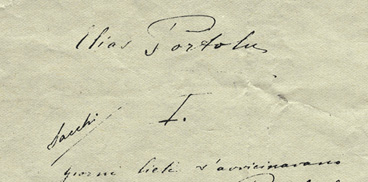 Elias Portolu
I.
Sacchi
giorni lieti s'avvicinavano